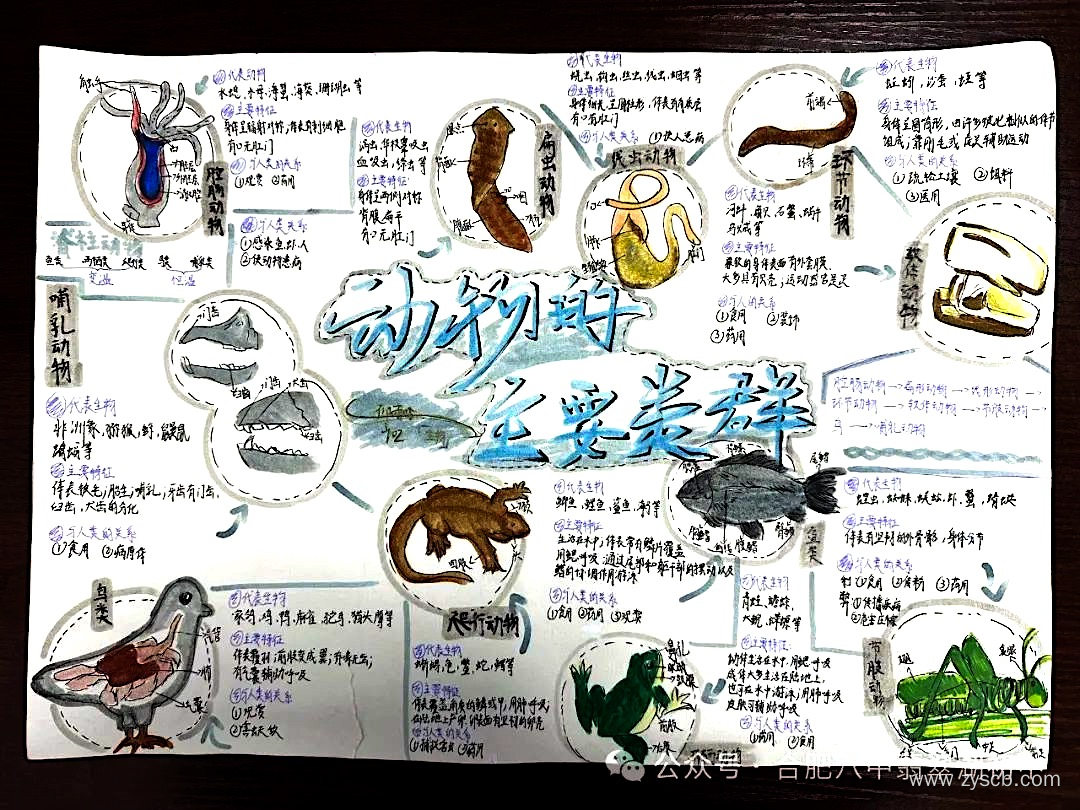 动物的
主要类群
触手
代表动物
水螅、水母、海蜇、海葵、珊瑚虫等
主要特征
身体呈辐射对称；体表有刺细胞
有口无肛门
与人类的关系
①观赏 ②药用
腔肠动物
代表生物
涡虫、华枝睾吸虫
血吸虫、绦虫等
主要特征
身体呈两侧对称
背腹扁平
有口无肛门
与人类关系
①感染鱼、虾、人
②使动物患病
扁形动物
代表生物
蛲虫、钩虫、丝虫、线虫、蛔虫等
主要特征
身体细长，呈圆柱形，体表有角质层
有口有肛门
与人类关系
①使人患病
线虫动物
肛门
代表生物
蚯蚓、沙蚕、蛭等
主要特征
身体呈圆筒形，由许多彼此相似的体节
组成；靠刚毛或疣足辅助运动
与人类的关系
①疏松土壤
②饵料
③医用
环节动物
代表生物
河蚌、扇贝、石鳖、蜗牛
乌贼等
主要特征
柔软的身体表面有外套膜，
大多具有贝壳；运动器官是足
与人类的关系
①食用
②装饰
③药用
软体动物
脊柱动物
鱼类 两栖类 爬行类 鸟类 哺乳类
变温
恒温
哺乳动物
代表生物
非洲象、猕猴、虾、鼹鼠
蝙蝠等
主要特征
体表被毛；胎生，哺乳；牙齿有门齿、
臼齿、犬齿的分化
与人类的关系
①食用 ②病原体
门齿
臼齿
门齿
犬齿
臼齿
腔肠动物→扁形动物→线形动物→
环节动物→软体动物→节肢动物→
鸟→哺乳动物
鸟类
代表生物
家鸽、鸡、鸭、麻雀、鸵鸟、猫头鹰等
主要特征
体表覆羽；前肢变成翼；有喙无齿；
有气囊辅助呼吸
与人类的关系
①观赏
气管
肺
气囊
四肢
爬行动物
代表生物
蜥蜴、龟、鳖、蛇、鳄等
主要特征
体表覆盖角质的鳞或甲；用肺呼吸；
在陆地上产卵，卵表面有坚韧的卵壳
与人类的关系
代表生物
鲫鱼、鲤鱼、鲨鱼、海马等
主要特征
生活在水中；体表常有鳞片覆盖
用鳃呼吸；通过尾部和躯干部的摆动以及
鳍的协调作用游泳
与人类的关系
①食用 ②药用 ③观赏
鱼类
背鳍
尾鳍
胸鳍
腹鳍
臀鳍
代表生物
青蛙、蟾蜍、
大鲵、蝾螈等
主要特征
幼体生活在水中，用鳃呼吸
成体大多生活在陆地上，
也可在水中游泳；用肺呼吸
皮肤可辅助呼吸
与人类的关系
①药用 ②食用
鼻孔
眼球
鼓膜
前肢
后肢
代表生物
蝗虫、蜘蛛、蜈蚣、虾、蟹、蜻蜓
主要特征
体表有坚韧的外骨骼，身体分节
与人类的关系
①食用 ②食物 ③药用
①传播疾病
②危害庄稼
节肢动物
公众号·合肥八中
www.zyscb.com